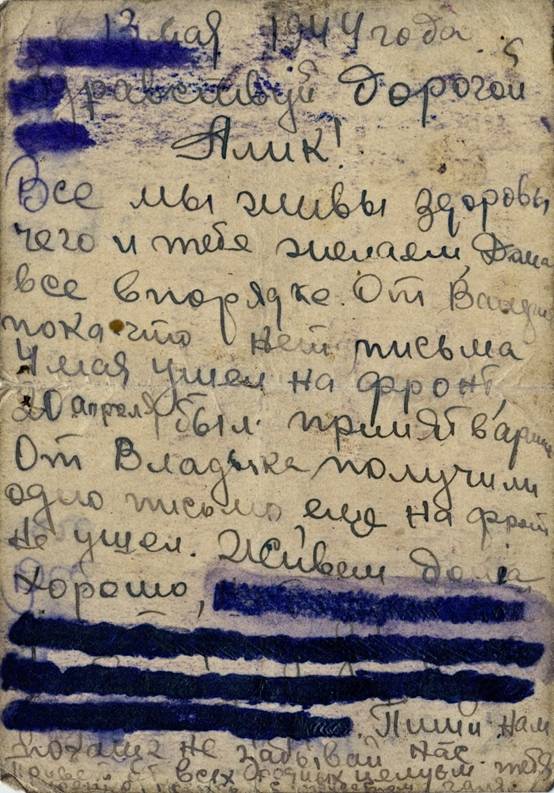 13 мая 1944 года
Здравствуй дорогой
Алик!
Все мы живы здоровы
чего и тебе желаем, Дома
все впорядке. От
пока что нет письма
4 мая ушел на фронт,
20 апреля был принят
От Владика получили
одно письмо еще на фронт
не ушел. Живем дома
хорошо,
. Пиши нам
почаще не забывай нас.
Привет от всех родных целуем тебя